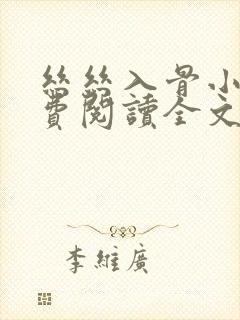 絲絲入骨小
費閱讀全文
李維廣